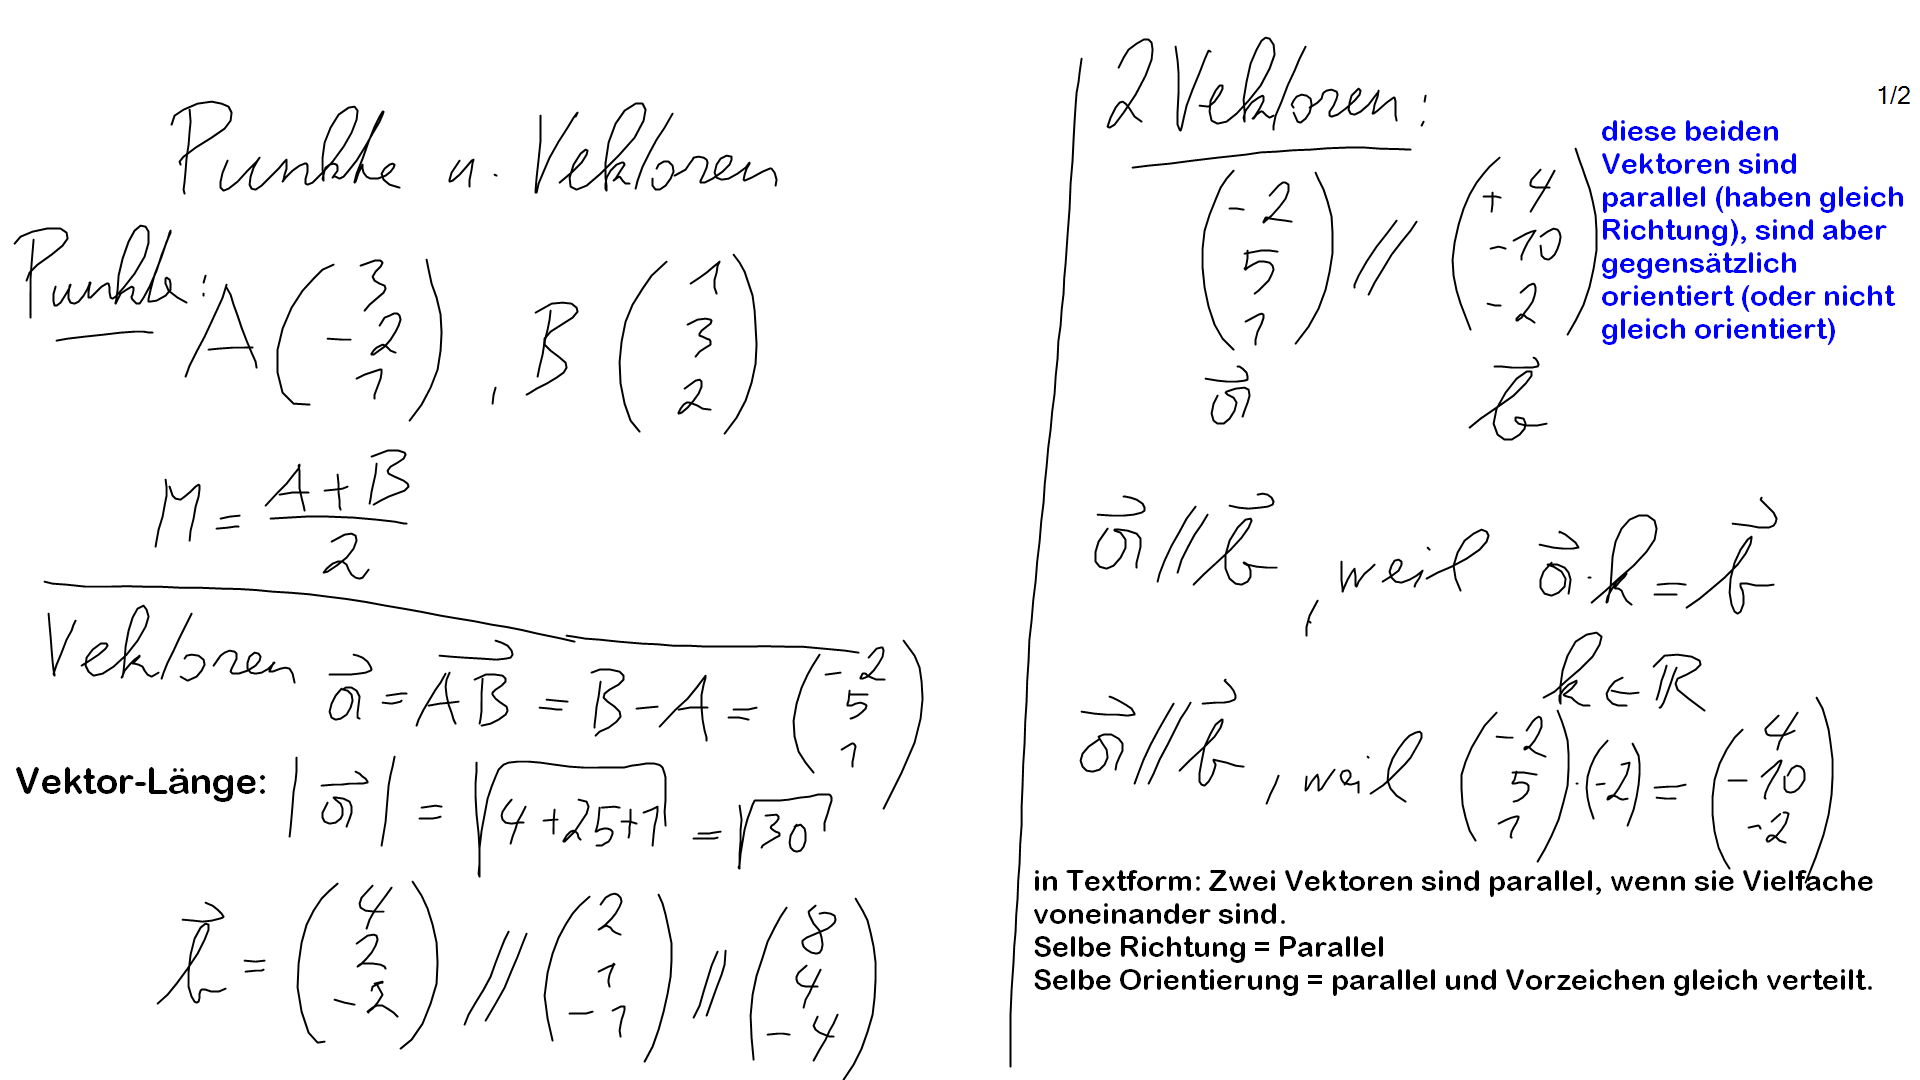 Punkte u. Vektoren
Punkte: A (3 -2 1) , B (1 3 2)
M = (A + B) / 2
Vektoren a⃗ = AB⃗ = B - A = (-2 5 1)
Vektor-Länge: |a⃗| = √(4+25+1) = √30
b⃗ = (4 2 -2) // (2 1 -1) // (8 4 -4)
2 Vektoren:
(-2 5 1) // (+4 -10 -2)
a⃗ b⃗
1/2
diese beiden
Vektoren sind
parallel (haben gleich
Richtung), sind aber
gegensätzlich
orientiert (oder nicht
gleich orientiert)
a⃗ // b⃗, weil a⃗ · k = b⃗
k ∈ ℝ
a⃗ // b⃗, weil (-2 5 1) · (-2) = (4 -10 -2)
in Textform: Zwei Vektoren sind parallel, wenn sie Vielfache
voneinander sind.
Selbe Richtung = Parallel
Selbe Orientierung = parallel und Vorzeichen gleich verteilt.